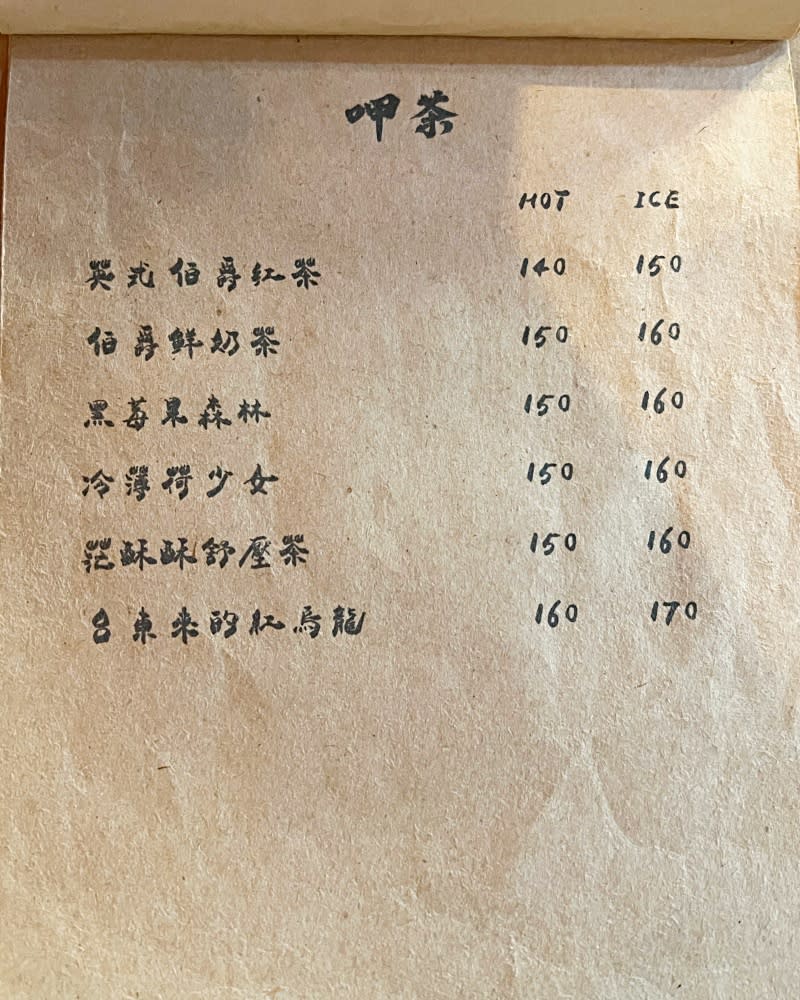 呷茶
HOT ICE
英式伯爵紅茶 140 150
伯爵鮮奶茶 150 160
黑莓果森林 150 160
冷薄荷少女 150 160
花酥酥舒壓茶 150 160
台東來的紅烏龍 160 170